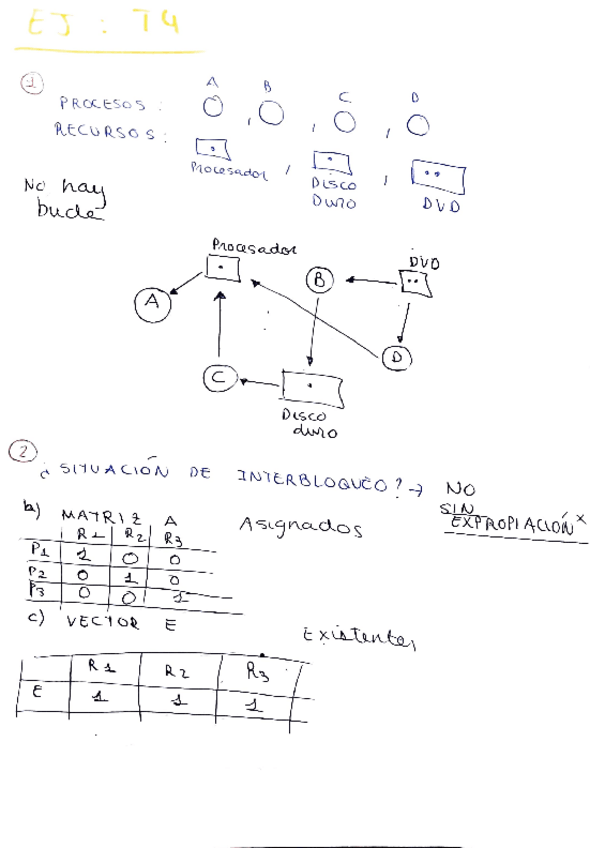 EJ : T4
1
A B C D
PROCESOS : , , ,
RECURSOS :
Procesador / Disco Duro , DVD
No hay
bucle
Procesador
DVD
B
A
D
C
Disco
duro
2
¿ SITUACIÓN DE INTERBLOQUEO? → NO
SIN
EXPROPIACIÓN x
b) MATRIZ A Asignados
R1 R2 R3
P1 1 0 0
P2 0 1 0
P3 0 0 1
c) VECTOR E Existentes
R1 R2 R3
E 1 1 1